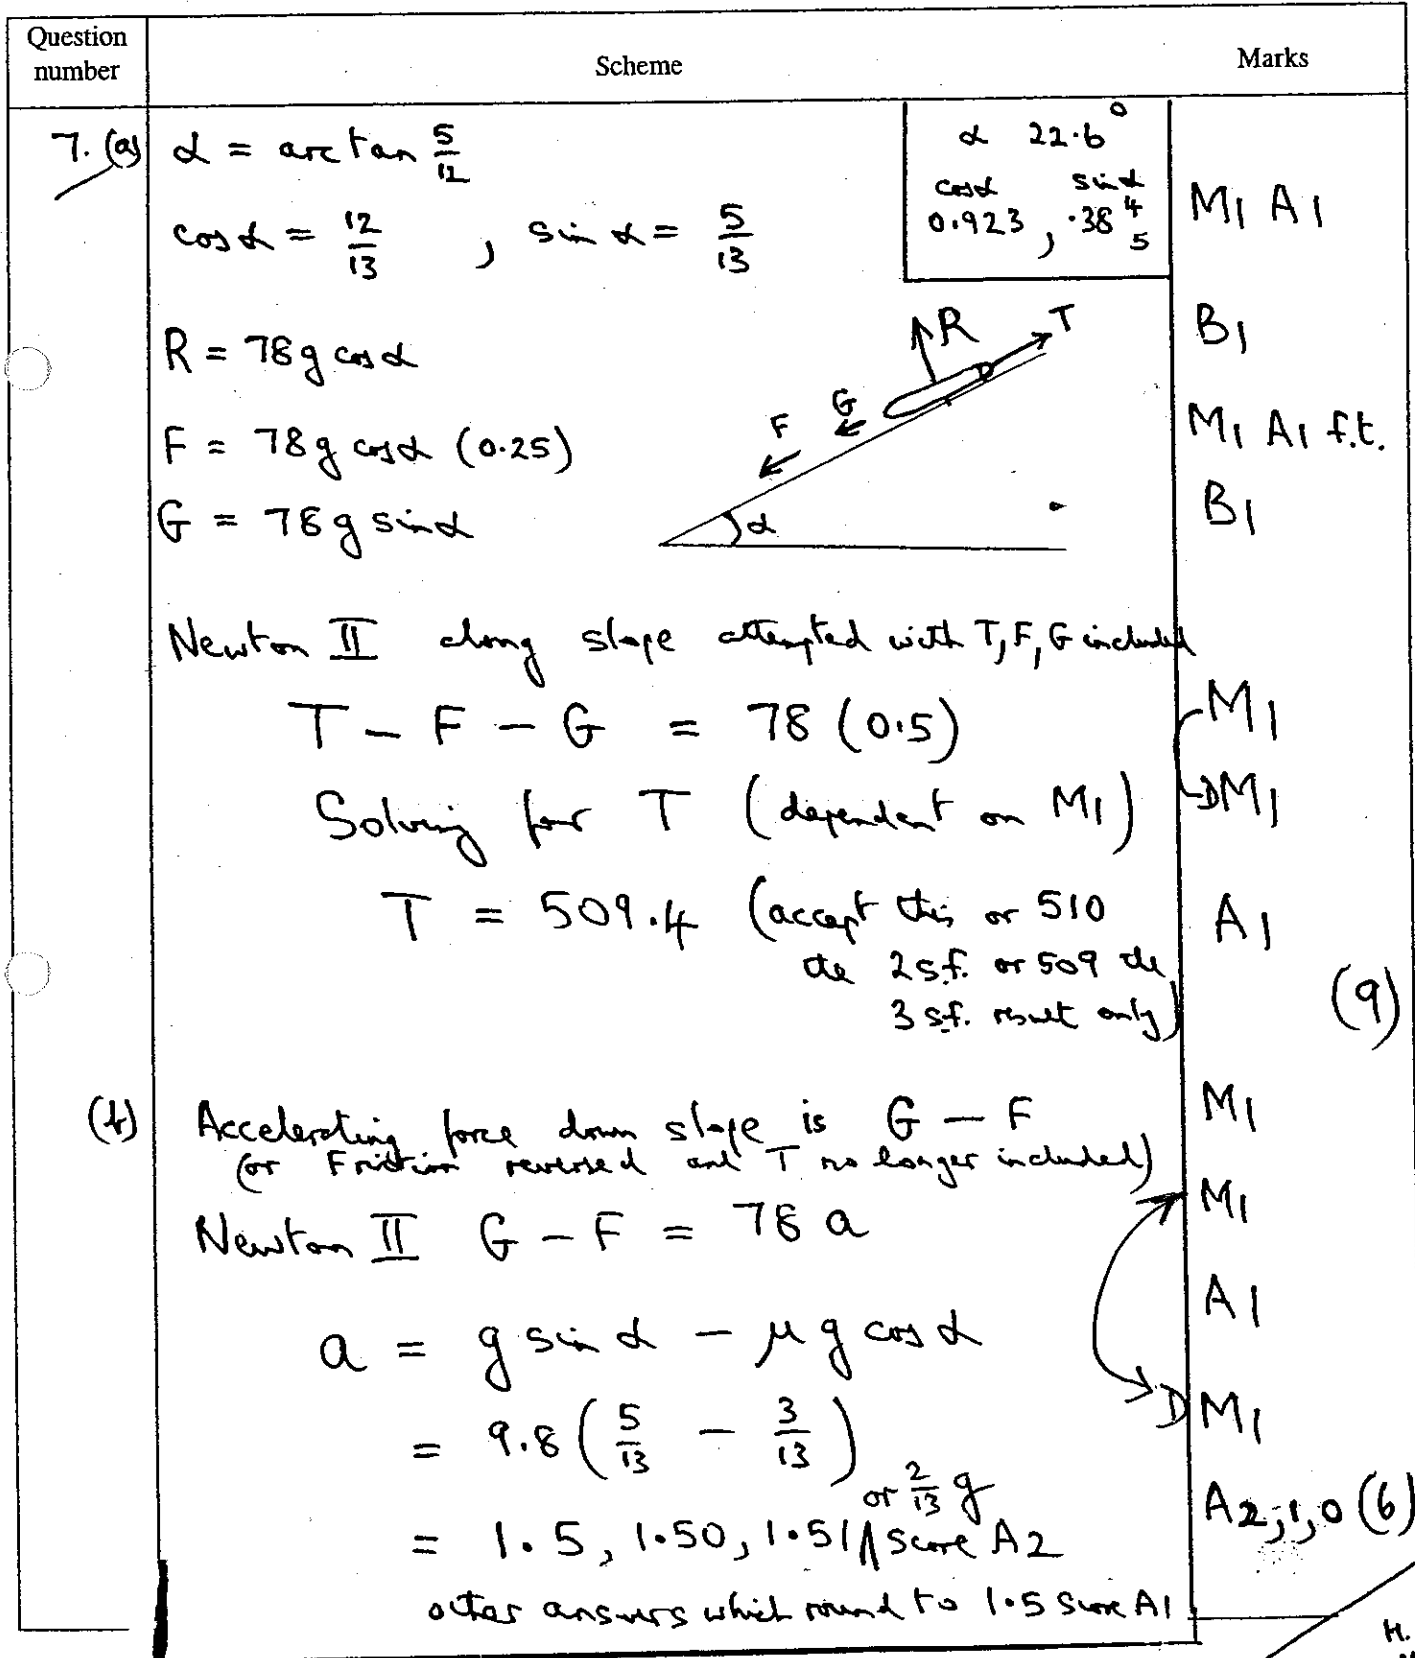 Question number
Scheme
Marks
7. (a) α = arctan 5/12
α 22.6°
cosα sinα
0.923 , .38 4 5
M1 A1
cosα = 12/13 , sinα = 5/13
R = 78g cosα
B1
R T
G
F
α
F = 78g cosα (0.25)
M1 A1 f.t.
G = 78g sinα
B1
Newton II along slope attempted with T, F, G included
T - F - G = 78 (0.5)
M1
Solving for T (dependent on M1)
DM1
T = 509.4 (accept this or 510
the 2 s.f. or 509 the
3 s.f. result only)
A1
(9)
(b) Accelerating force down slope is G - F
M1
(or Friction reversed and T no longer included)
Newton II G - F = 78 a
M1
A1
a = g sinα - μ g cosα
= 9.8 (5/13 - 3/13)
DM1
or 2/13 g
= 1.5, 1.50, 1.51 score A2
A2,1,0 (6)
other answers which round to 1.5 score A1
H.